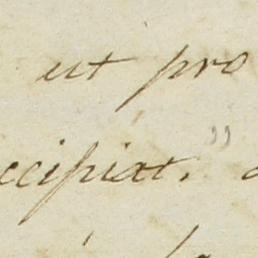 ut pro
ccipiat."